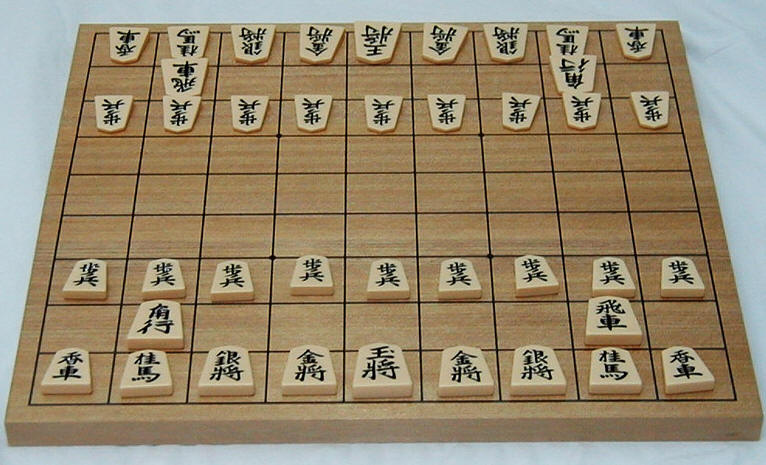 香車 桂馬 銀將 金將 王將 金將 銀將 桂馬 香車
飛車 角行
歩兵 歩兵 歩兵 歩兵 歩兵 歩兵 歩兵 歩兵 歩兵
歩兵 歩兵 歩兵 歩兵 歩兵 歩兵 歩兵 歩兵 歩兵
角行 飛車
香車 桂馬 銀將 金將 玉將 金將 銀將 桂馬 香車